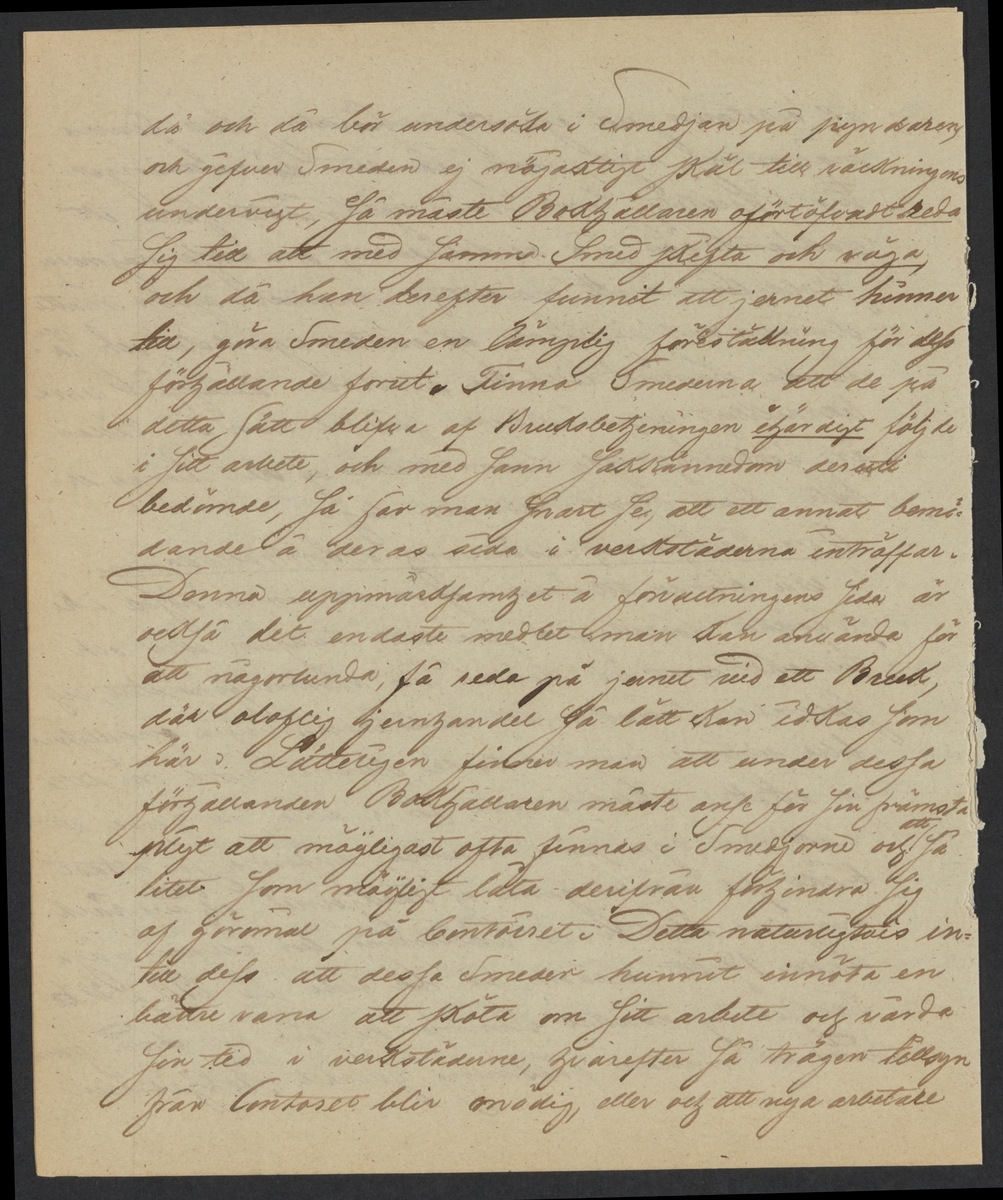 då och då bör undersöka i Smedjan på pyndaren,
och gifver Smeden ej nöjaktigt skäl till räckningens
undervigt, så måste Bokhållaren oförtöfvadt reda
sig till att med samma Smed skifta och väga,
och då han derefter funnit att jernet hinner
till, göra Smeden en lämplig föreställning för dess
förhållande förut. Finna Smederna att de på
detta sätt blifva af Bruksbetjeningen ihärdigt följde
i sitt arbete, och med sann sakkännedom deruti
bedömde, så får man snart se, att ett annat bemö=
dande å deras sida i verkstäderna inträffar.
Denna uppmärksamhet å förvaltningens sida är
också det endaste medlet man kan använda för
att någorlunda, få reda på jernet vid ett Bruk,
där oloflig jernhandel så lätt kan idkas som
här. Lätteligen finner man att under dessa
förhållanden Bokhållaren måste anse för sin främsta
pligt att möjligast ofta finnas i Smedjorne och att så
litet som möjligt låta derifrån förhindra sig
af göromål på Contoiret. Detta naturligtvis in=
till dess att dessa Smeder hunnit innöta en
bättre vana att sköta om sitt arbete och vårda
sin tid i verkstäderne, hvarefter så trägen tillsyn
från Contoret blir onödig, eller ock att nya arbetare